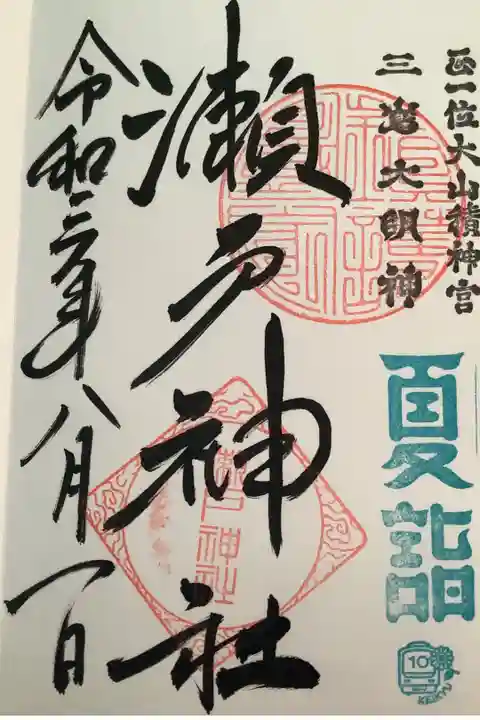 正一位大山積神宮
三島大明神
夏詣
10
KEIKYU
瀬戸神社
瀬戸神社
令和三年八月一日